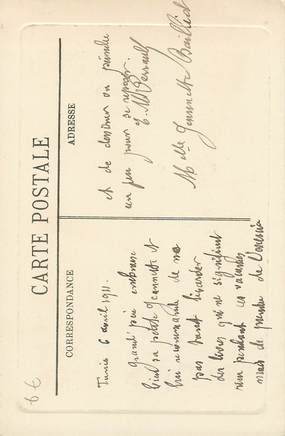 CARTE POSTALE
CORRESPONDANCE
ADRESSE
Tunis 6 avril 1911.
Grand père embrasse
bien sa petite Jeannette et
lui recommande de ne
pas tant
les livres qui ne signifient
rien pendant ces vacances
mais de prendre de l'exercice
et de dessiner ou peindre
un peu pour se reposer.
Melle Jeannette